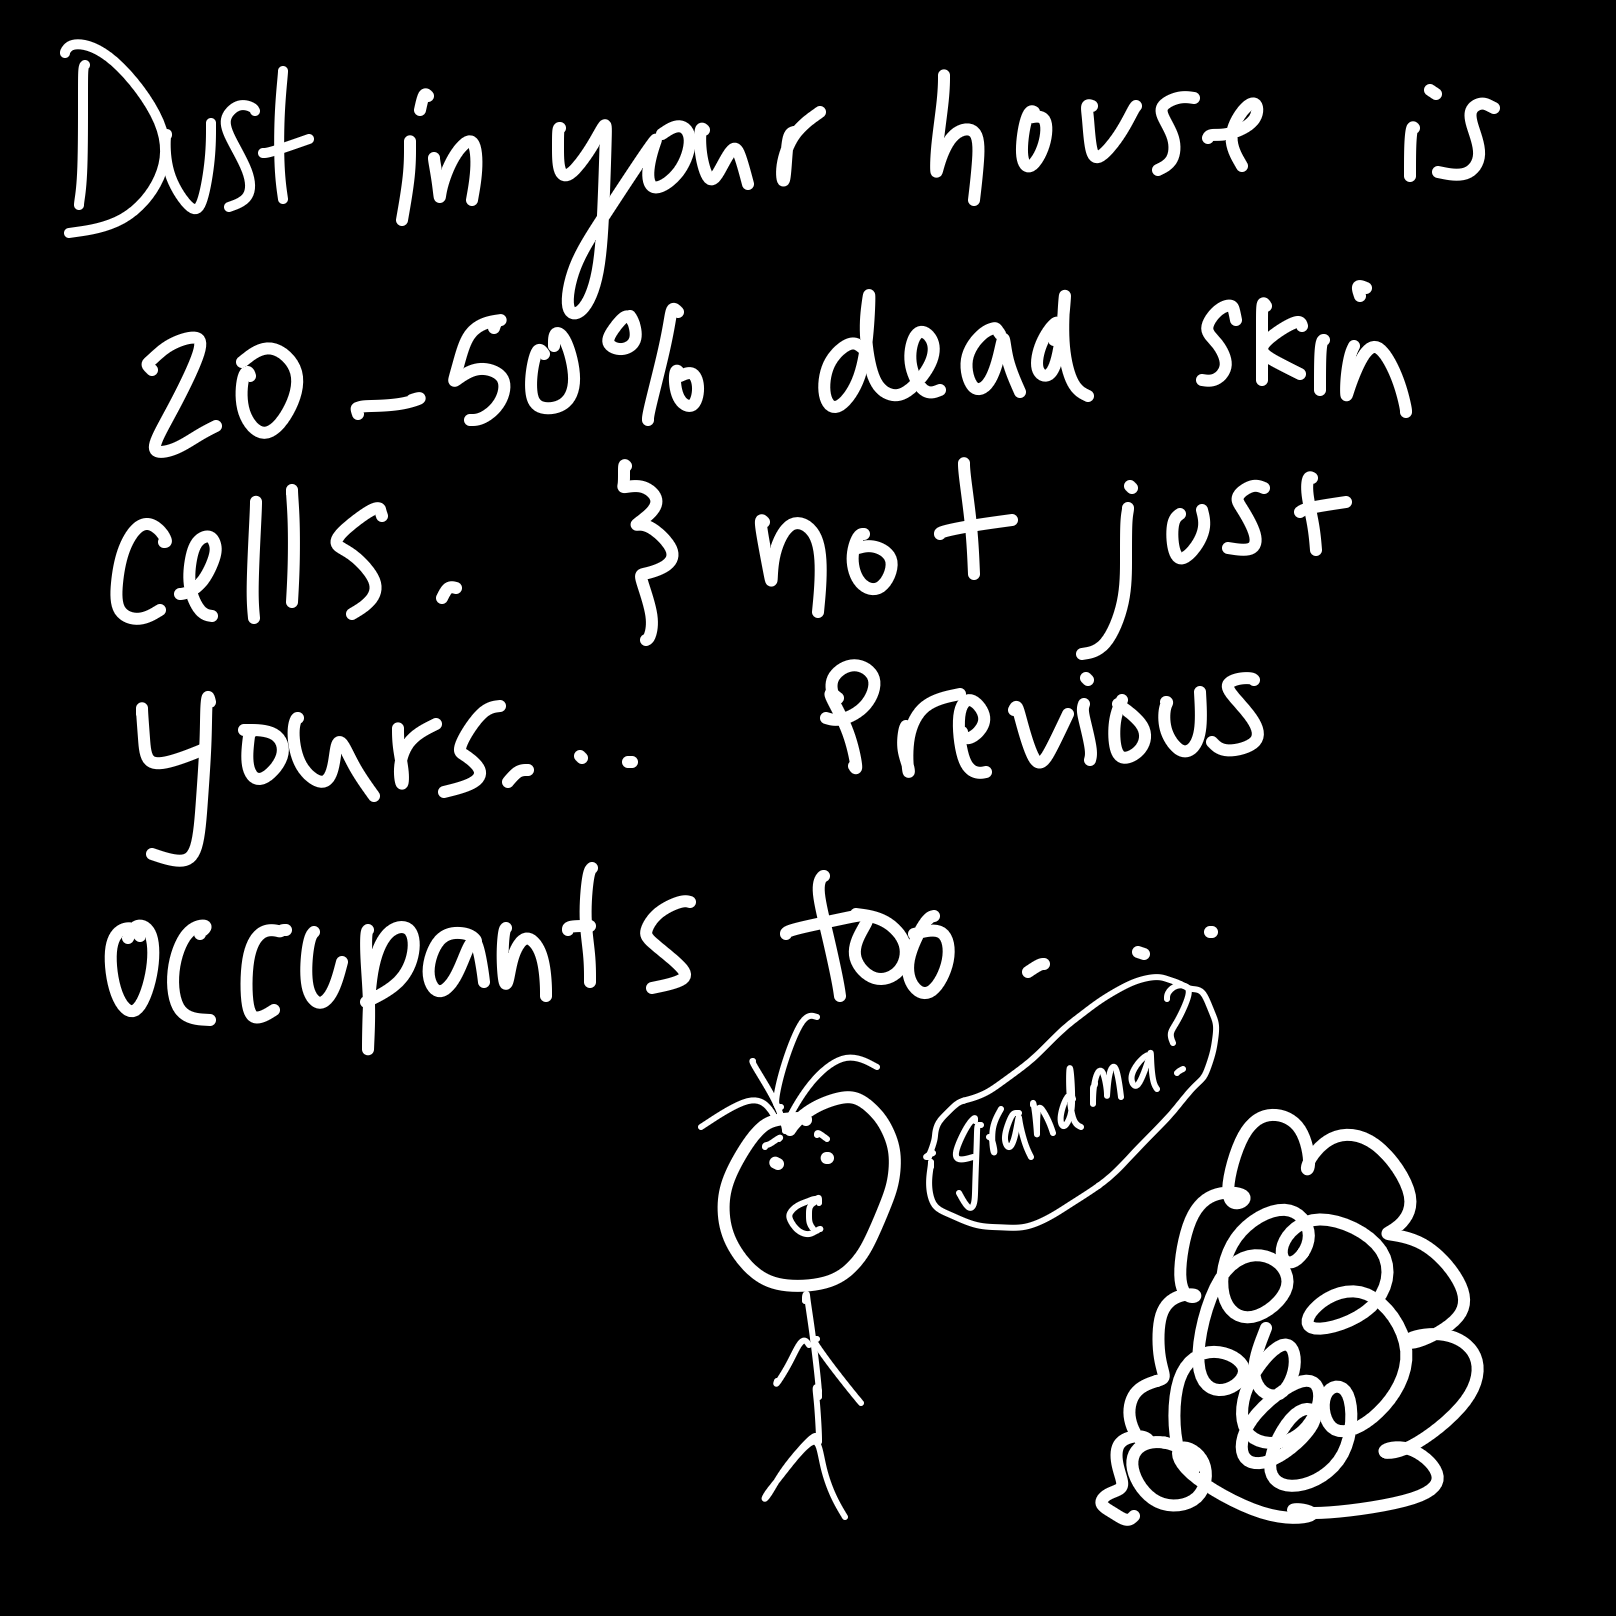 Dust in your house is
20-50% dead skin
cells. } not just
yours... Previous
occupants too...
grandma?